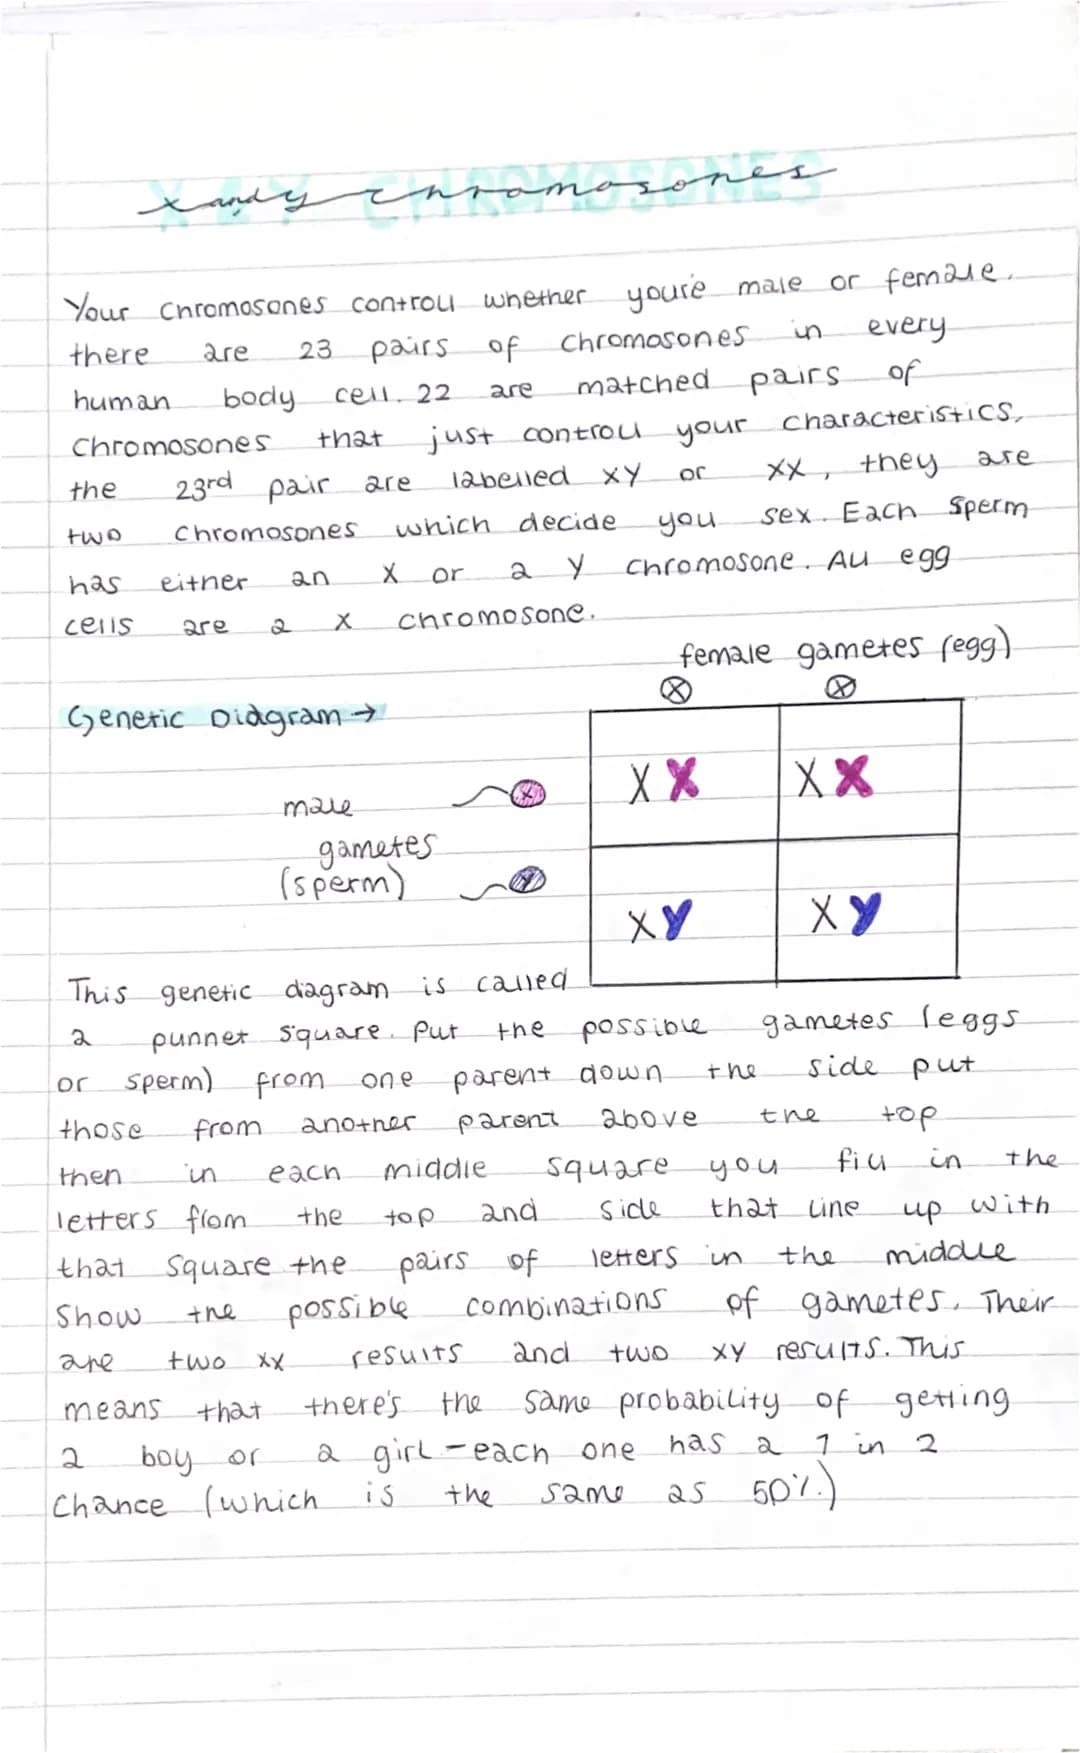 X & Y CHROMOSONES
x and y chromosones
Your chromosones controll whether you're male or female.
there are 23 pairs of chromosones in every
human body cell. 22 are matched pairs of
chromosones that just controll your characteristics,
the 23rd pair are labelled xy or xx, they are
two chromosones which decide you sex. Each sperm
has either an X or a Y chromosone. All egg
cells are a X chromosone.
female gametes (egg)
X X
Genetic Diagram →
X X X X
male X
gametes
(sperm) Y
X Y X Y
This genetic diagram is called
a punnet square. Put the possible gametes (eggs
or sperm) from one parent down the side put
those from another parent above the top
then in each middle square you fill in the
letters from the top and side that line up with
that square the pairs of letters in the middle
show the possible combinations of gametes. Their
are two xx results and two xy results. This
means that there's the same probability of getting
a boy or a girl - each one has a 1 in 2
chance (which is the same as 50%.)